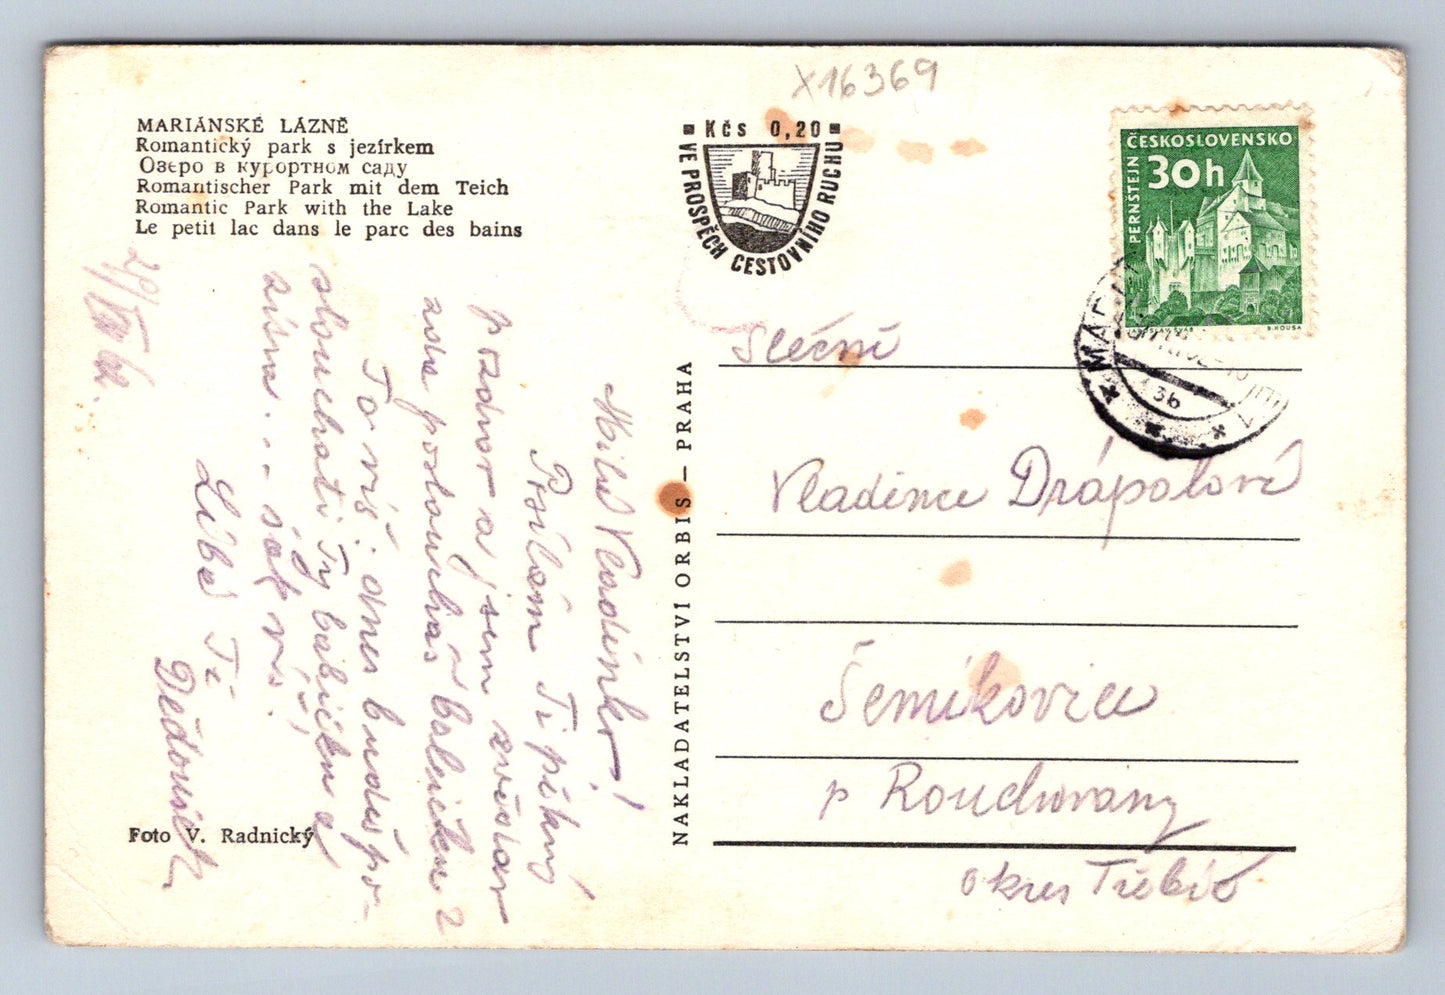 X16369
MARIÁNSKÉ LÁZNĚ
Romantický park s jezírkem
Озеро в курортном саду
Romantischer Park mit dem Teich
Romantic Park with the Lake
Le petit lac dans le parc des bains
Kčs 0,20
VE PROSPĚCH CESTOVNÍHO RUCHU
ČESKOSLOVENSKO
30h
PERNŠTEJN
JAROSLAV ŠVÁB
B. HOUSA
Milá Vladinko!
Posílám Ti pěkný
pozdrav a jsem zvědav
zda posloucháš babičku?
To víš, dnes budeš po-
slouchati Ty babičku a
zítra... zak
Líbá Tě
Dědoušek
NAKLADATELSTVÍ ORBIS — PRAHA
Slečně
Vladince Drápalové
Šemíkovice
p Rouchovany
okres Třebíč
Foto V. Radnický